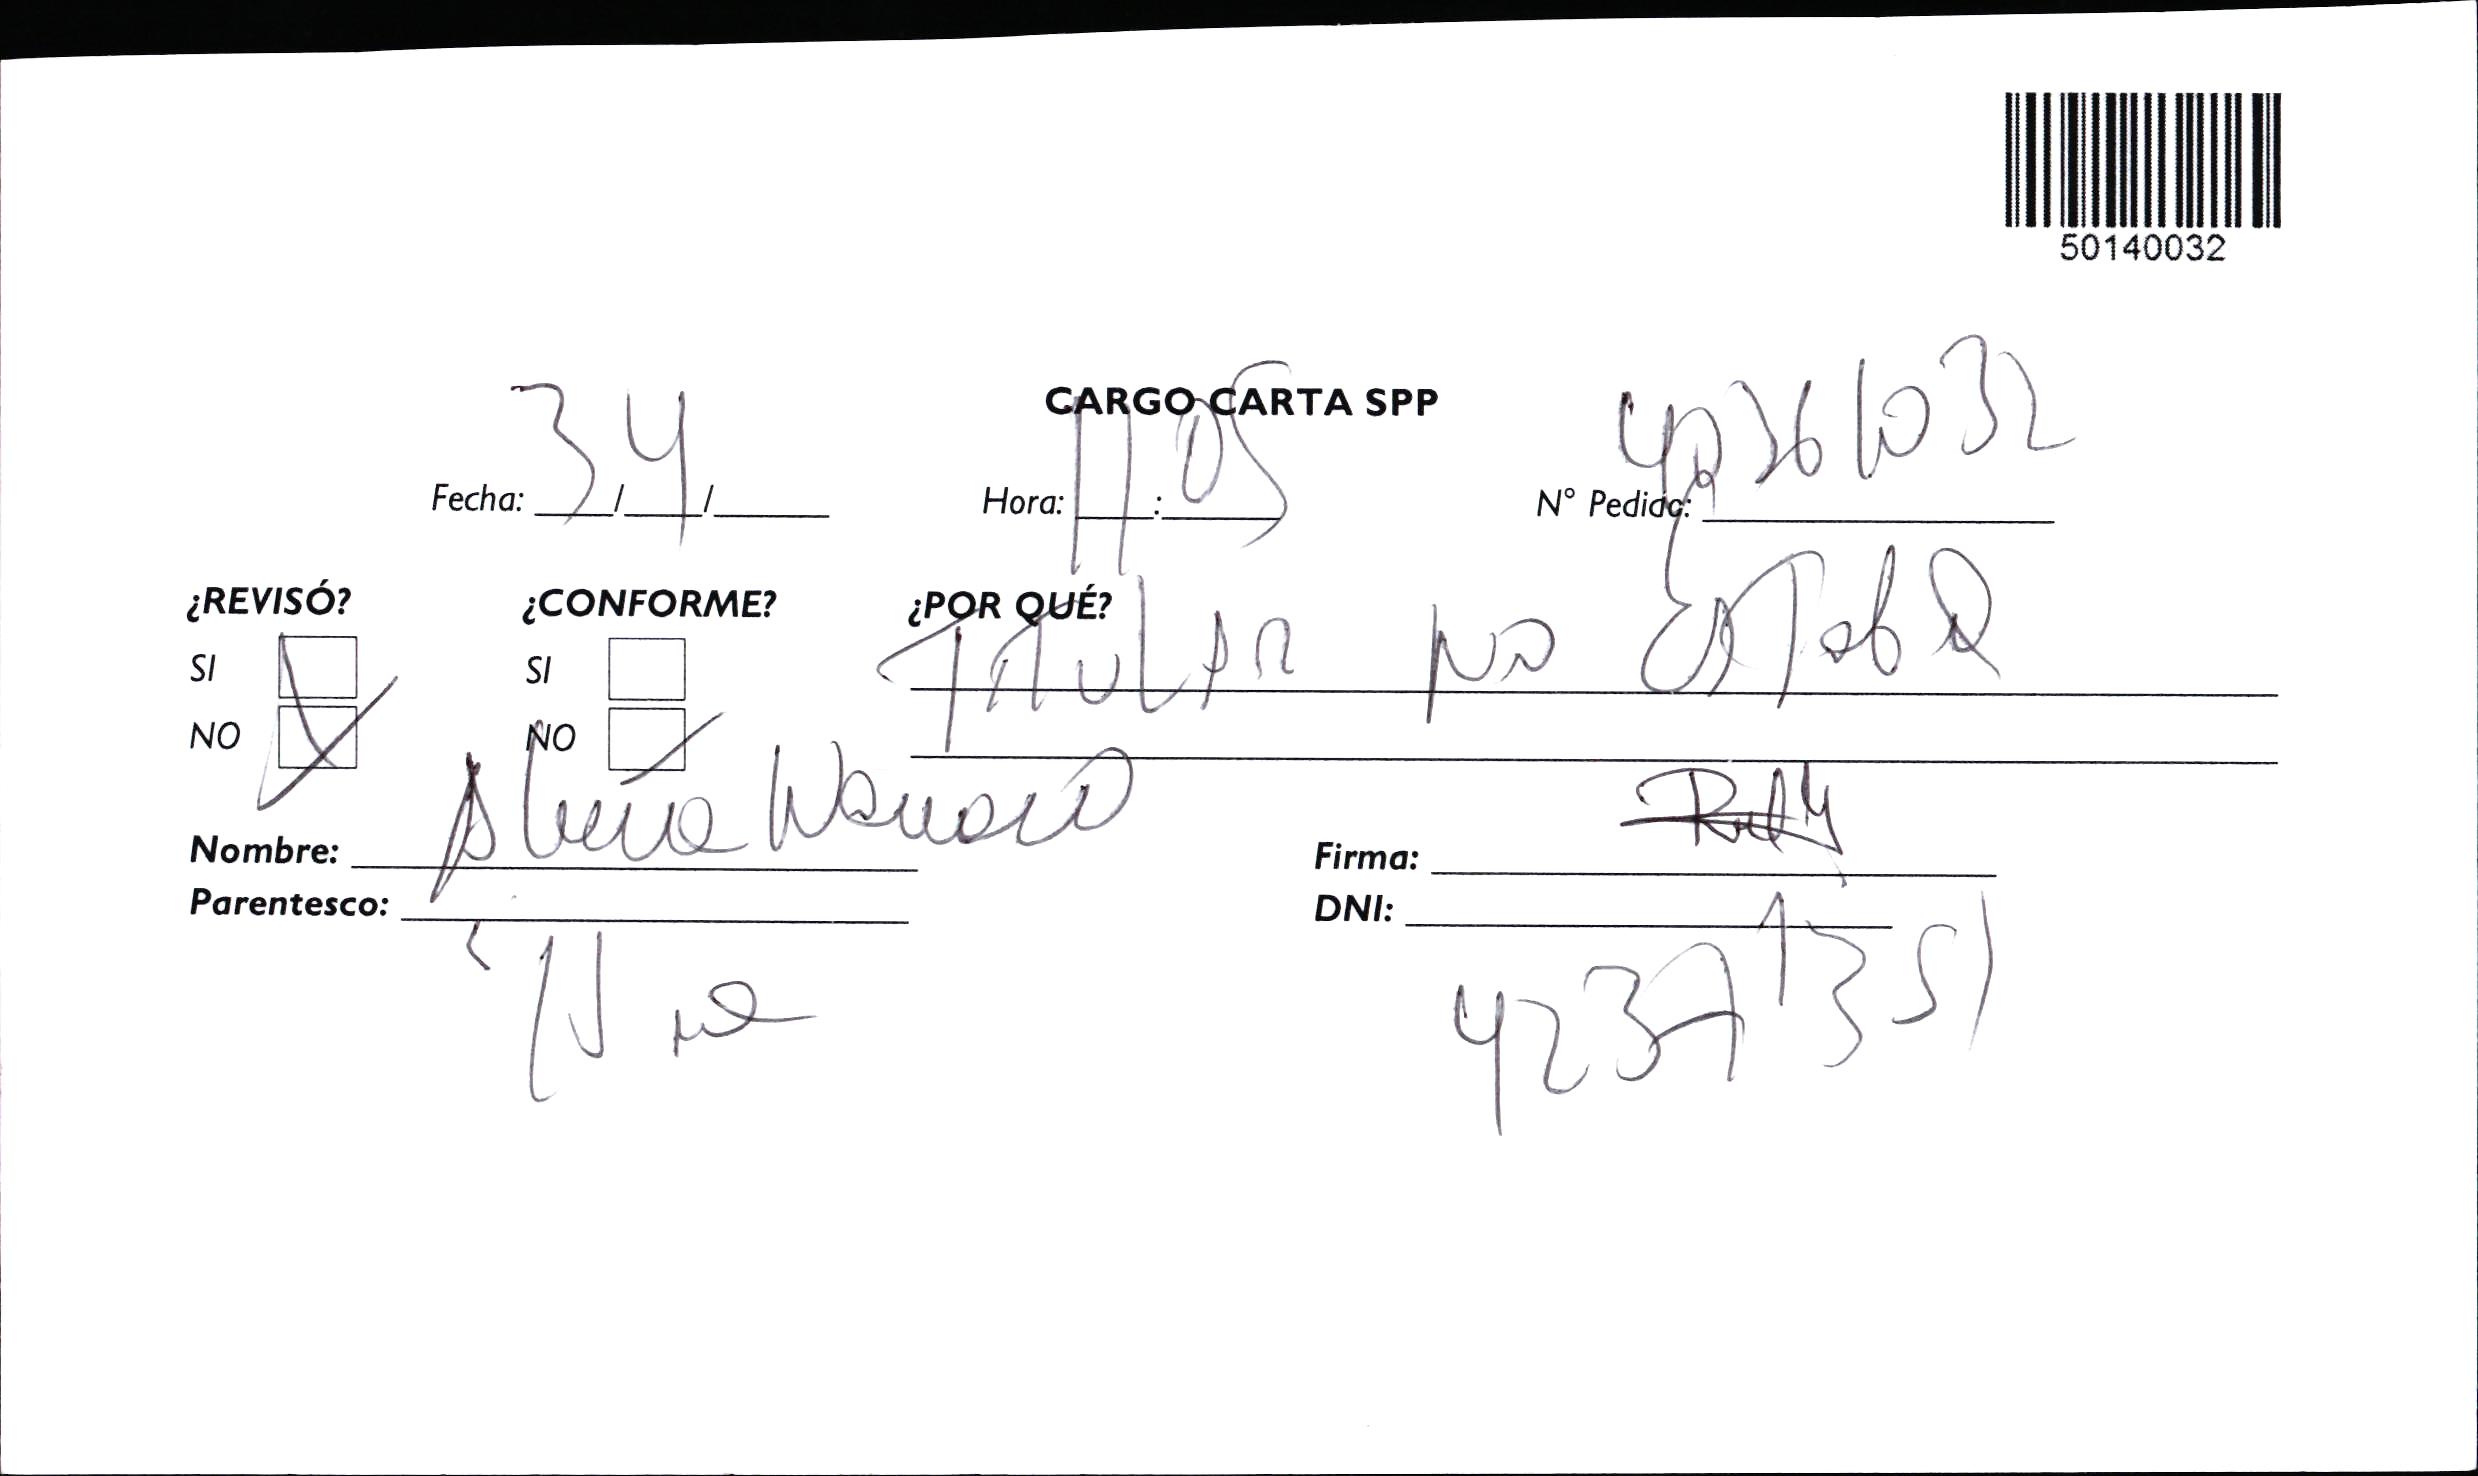 50140032
CARGO CARTA SPP
Fecha: 3/4/
Hora: 11:05
N° Pedido: 40361032
¿REVISÓ?
¿CONFORME?
¿POR QUÉ?
SI
SI
TITULAR NO ESTABA
NO
NO
Nombre:
Firma:
Parentesco:
DNI: